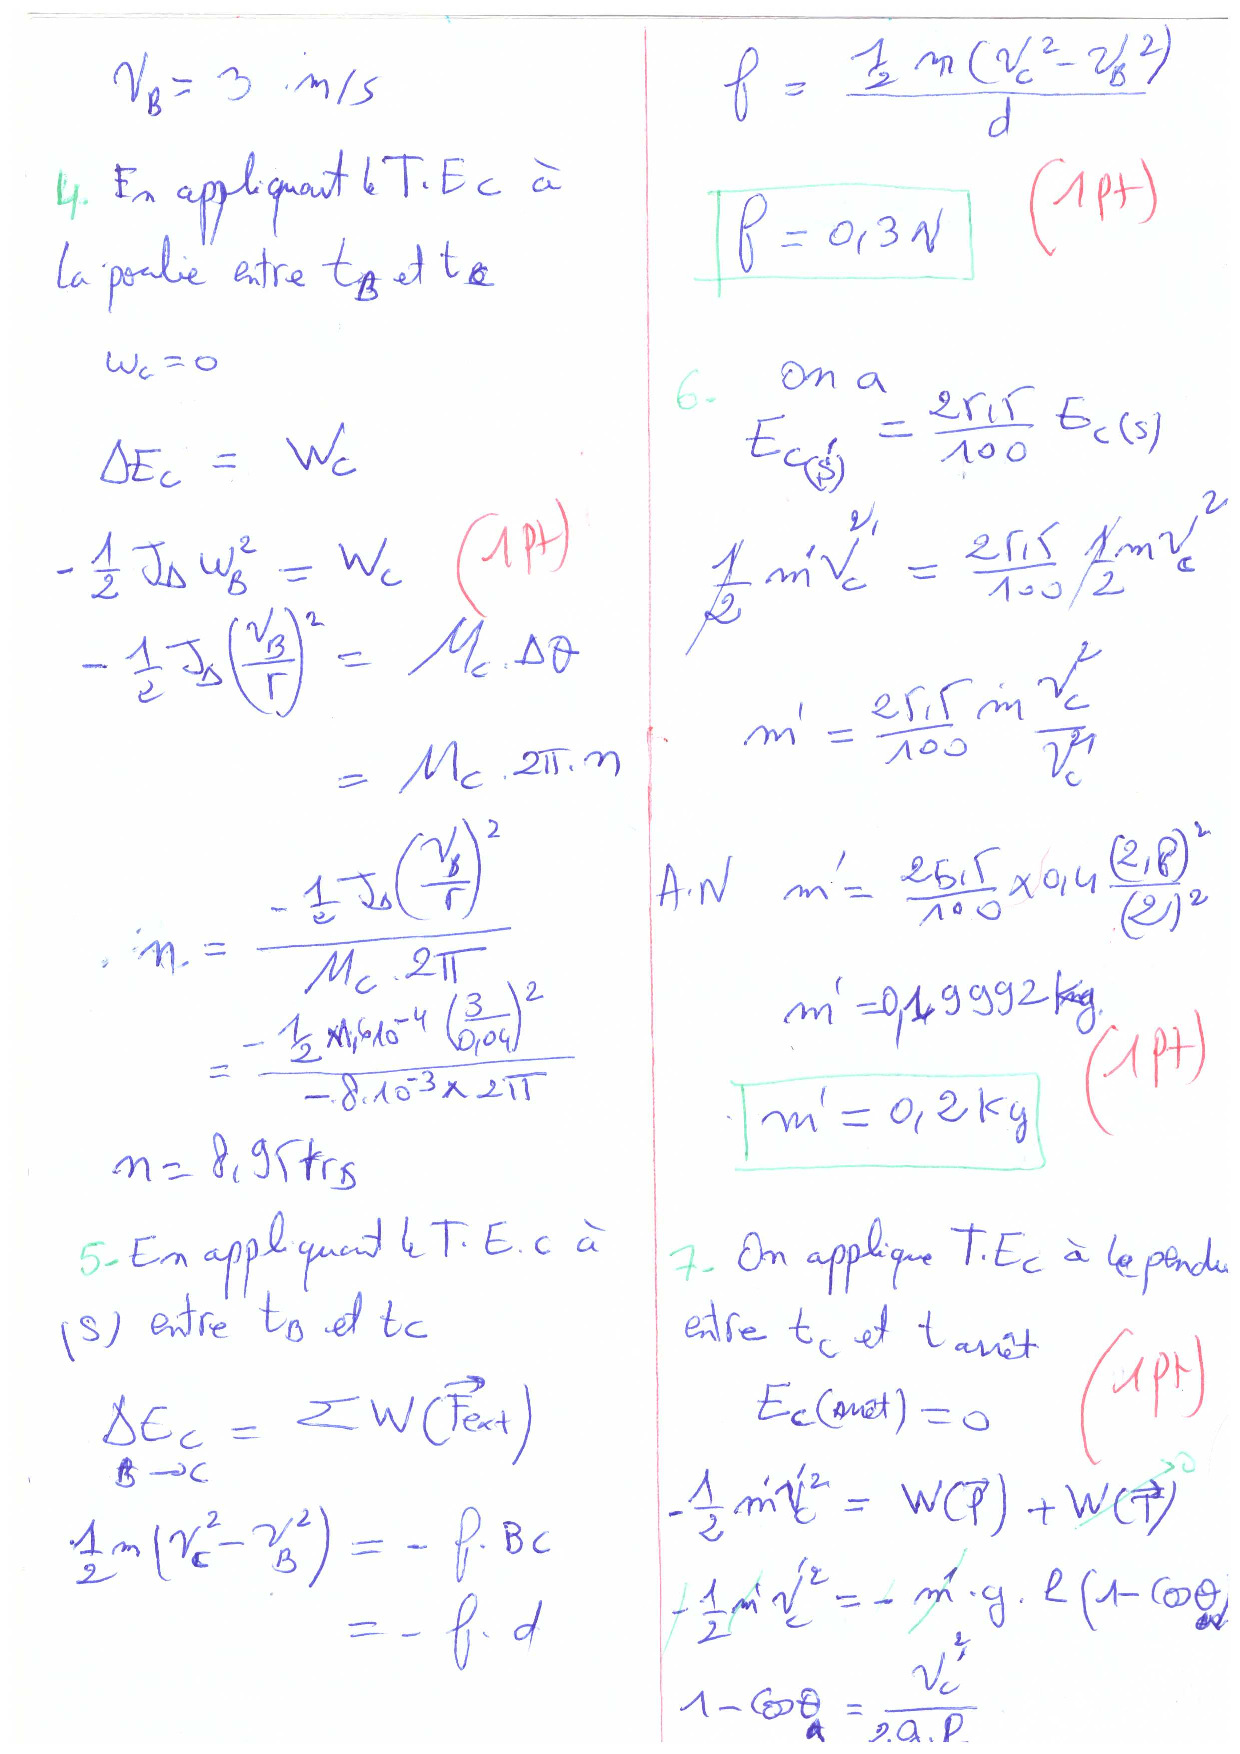 V_B = 3 m/s
4. En appliquant le T.Ec à
la poulie entre t_B et t_C
ω_C = 0
ΔE_C = W_C
-1/2 J_Δ ω_B² = W_C (1pt)
-1/2 J_Δ (V_B/r)² = M_C . Δθ
= M_C . 2π . n
n = (-1/2 J_Δ (V_B/r)²) / (M_C . 2π)
= (-1/2 × 1,6 10⁻⁴ (3/0,04)²) / (-8.10⁻³ × 2π)
n = 8,95 trs
5- En appliquant le T.E.c à
(S) entre t_B et t_C
ΔE_C = ΣW(F⃗ext)
B→C
1/2 m (V_C² - V_B²) = - f . BC
= - f . d
f = (1/2 m (V_C² - V_B²)) / d
f = 0,3 N (1pt)
6- On a
E_C(S') = 25,5/100 E_C(S)
1/2 m' V_C'² = 25,5/100 1/2 m V_C²
m' = 25,5/100 m V_C²/V_C'²
A.N m' = 25,5/100 × 0,4 (2,8)²/(2)²
m' = 0,19992 kg
(1pt)
m' = 0,2 kg
7- On applique T.Ec à le pendu
entre t_C et t arrêt
E_C(arrêt) = 0 (1pt)
-1/2 m' V_C'² = W(P⃗) + W(T⃗) →0
-1/2 m' V_C'² = - m' . g . l (1 - cos θ_a)
1 - cos θ_a = V_C'² / 2.g.l